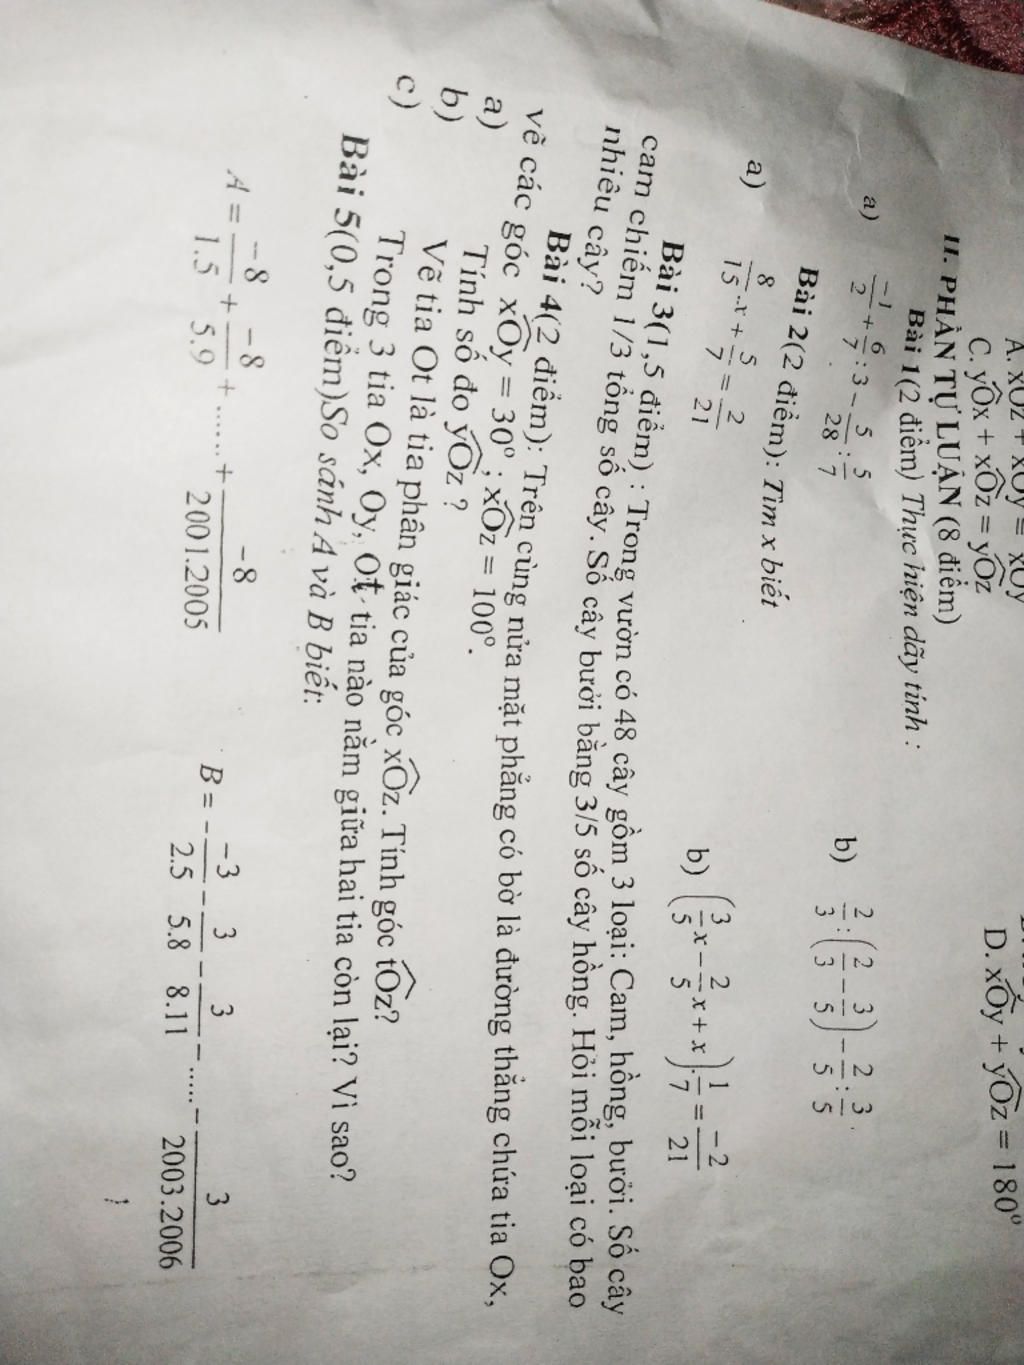 A. xOz + xOy =
C. yOx + xOz = yOz
D. xOy + yOz = 180⁰
II. PHẦN TỰ LUẬN (8 điểm)
Bài 1(2 điểm) Thực hiện dãy tính :
a) -1/2 + 6/7 : 3 - 5/28 : 5/7
b) 2/3 : (2/3 - 3/5) - 2/5 : 3/5
Bài 2(2 điểm): Tìm x biết
a) 8/15 .x + 5/7 = 2/21
b) (3/5 x - 2/5 x + x). 1/7 = -2/21
Bài 3(1,5 điểm) : Trong vườn có 48 cây gồm 3 loại: Cam, hồng, bưởi. Số cây
cam chiếm 1/3 tổng số cây. Số cây bưởi bằng 3/5 số cây hồng. Hỏi mỗi loại có bao
nhiêu cây?
Bài 4(2 điểm): Trên cùng nửa mặt phẳng có bờ là đường thẳng chứa tia Ox,
vẽ các góc xOy = 30⁰ ; xOz = 100⁰.
a) Tính số đo yOz ?
b) Vẽ tia Ot là tia phân giác của góc xOz. Tính góc tOz?
c) Trong 3 tia Ox, Oy, Ot tia nào nằm giữa hai tia còn lại? Vì sao?
Bài 5(0,5 điểm)So sánh A và B biết:
A = -8/1.5 + -8/5.9 + ...... + -8/2001.2005
B = - -3/2.5 - 3/5.8 - 3/8.11 - ..... - 3/2003.2006